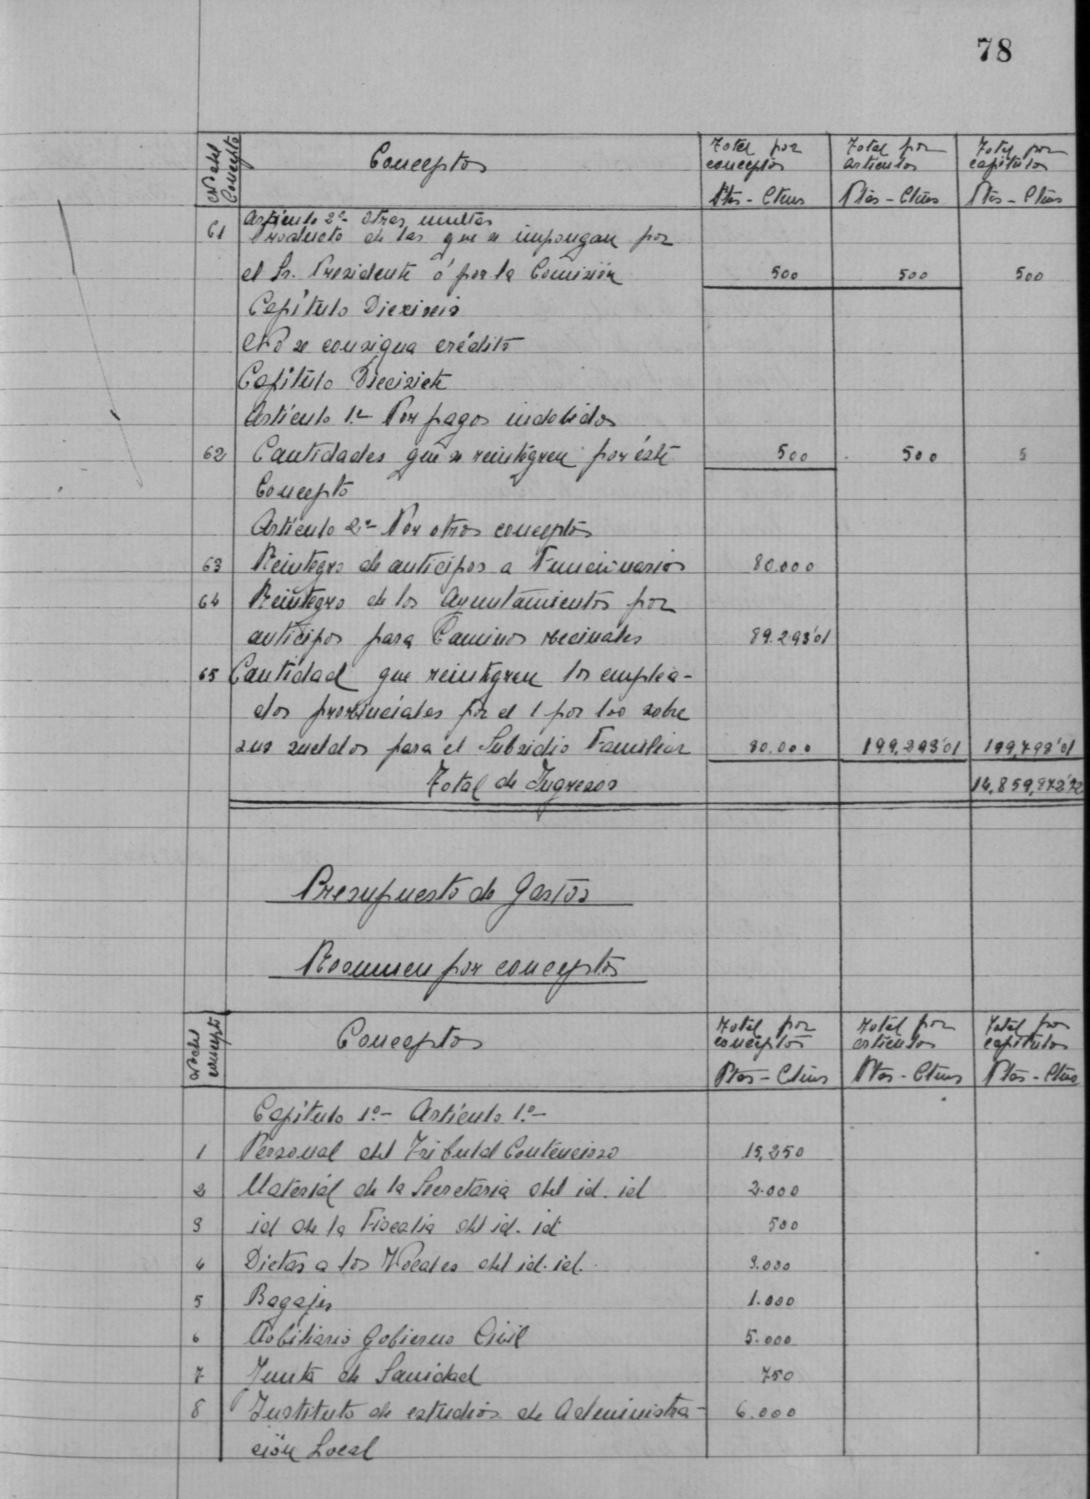 78
Nº del Concepto Conceptos Total por conceptos Ptas - Ctms Total por artículos Ptas - Ctms Total por capítulos Ptas - Ctms
Artículo 2º- Otras multas
61 Producto de las que se impongan por
el Sr. Presidente ó por la Comisión 500 500 500
Capítulo Dieciseis
No se consigna crédito
Capítulo Diecisiete
Artículo 1º- Por pagos indebidos
62 Cantidades que se reintegren por éste 500 500 5
Concepto
Artículo 2º- Por otros conceptos
63 Reintegro de anticipos a Funcionarios 80.000
64 Reintegro de los Ayuntamientos por
anticipos para Caminos vecinales 89.293'01
65 Cantidad que reintegren los emplea-
dos provinciales por el 1 por 100 sobre
sus sueldos para el Subsidio Familiar 30.000 199,293'01 199,793'01
Total de Ingresos 14,859,972'72
Presupuesto de Gastos
Resumen por conceptos
Nº del concepto Conceptos Total por conceptos Ptas - Ctms Total por artículos Ptas - Ctms Total por capítulos Ptas - Ctms
Capítulo 1º- Artículo 1º-
1 Personal del Tribunal Contencioso 15,250
2 Material de la Secretaria del id. id 2.000
3 id de la Fiscalia del id. id 500
4 Dietas a los Vocales del id. id. 3.000
5 Bagajes 1.000
6 Mobiliario Gobierno Civil 5.000
7 Junta de Sanidad 750
8 Instituto de estudios de Administra- 6.000
ción Local